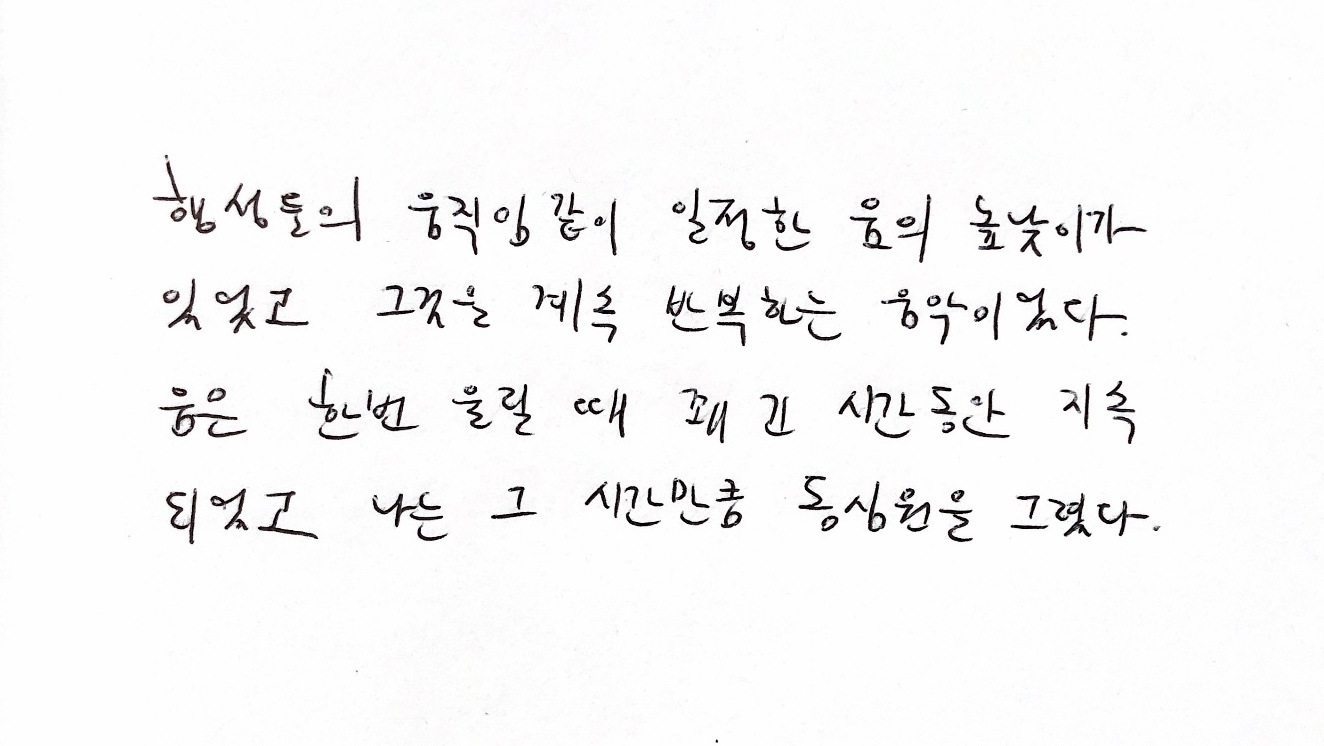 행성들의 움직임같이 일정한 음의 높낮이가
있었고 그것을 계속 반복하는 음악이었다.
음은 한번 울릴 때 꽤 긴 시간동안 지속
되었고 나는 그 시간만큼 동심원을 그렸다.